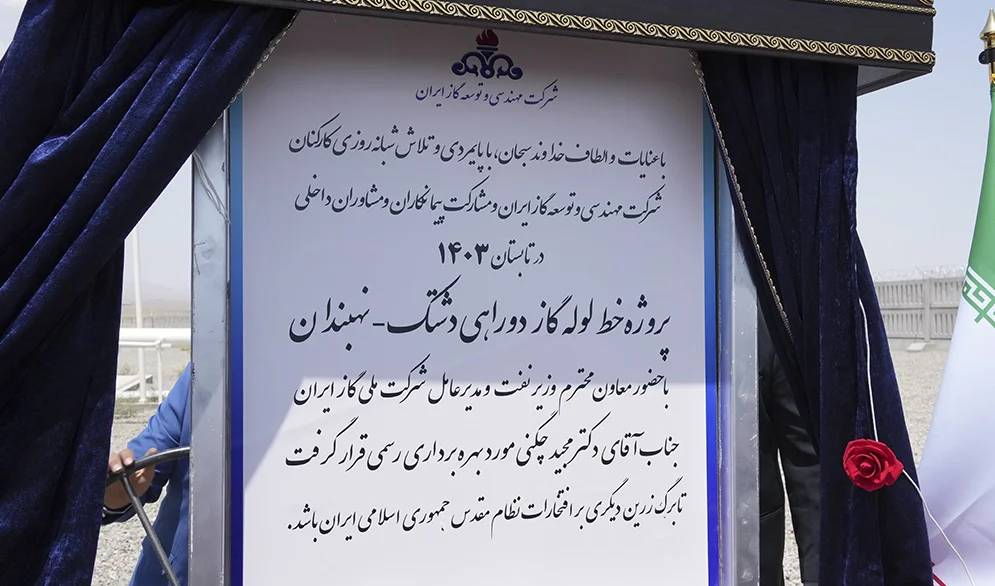 شرکت مهندسی و توسعه گاز ایران
با عنایات و الطاف خداوند سبحان، با پایمردی و تلاش شبانه روزی کارکنان
شرکت مهندسی و توسعه گاز ایران و مشارکت پیمانکاران و مشاوران داخلی
در تابستان ۱۴۰۳
پروژه خط لوله گاز دوراهی دشتک - نهبندان
با حضور معاون محترم وزیر نفت و مدیر عامل شرکت ملی گاز ایران
جناب آقای دکتر مجید چگنی مورد بهره برداری رسمی قرار گرفت
تا برگ زرین دیگری بر افتخارات نظام مقدس جمهوری اسلامی ایران باشد.